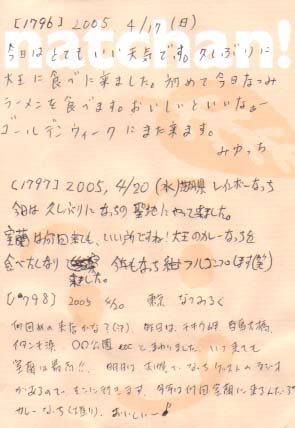 natchan!
[1796] 2005 4/17 (日)
今日はとてもいい天気です。久しぶりに
大王に食べに来ました。初めて今日なつみ
ラーメンを食べます。おいしいといいなぁー
ゴールデンウィークにまた来ます。
みゆっち
[1797] 2005, 4/20 (水) レインボーなっち
今日は久しぶりになっちの聖地にやって来ました。
室蘭は何回来ても、いい所ですね!大王のカレーなっちを
食べたくなり
来ました。
[1798] 2005 4/30 東京 なつみろく
何回めの来店かな?(汗) 昨日は、チキウ岬、白鳥大橋、
イタンキ浜、〇〇公園 etc とまわりました。いつ来ても
室蘭は最高!! 明日は
があるので、そこに行きます。今年は何回室蘭に来るんだろ?
カレーなっち(大盛り)、おいしい〜♪